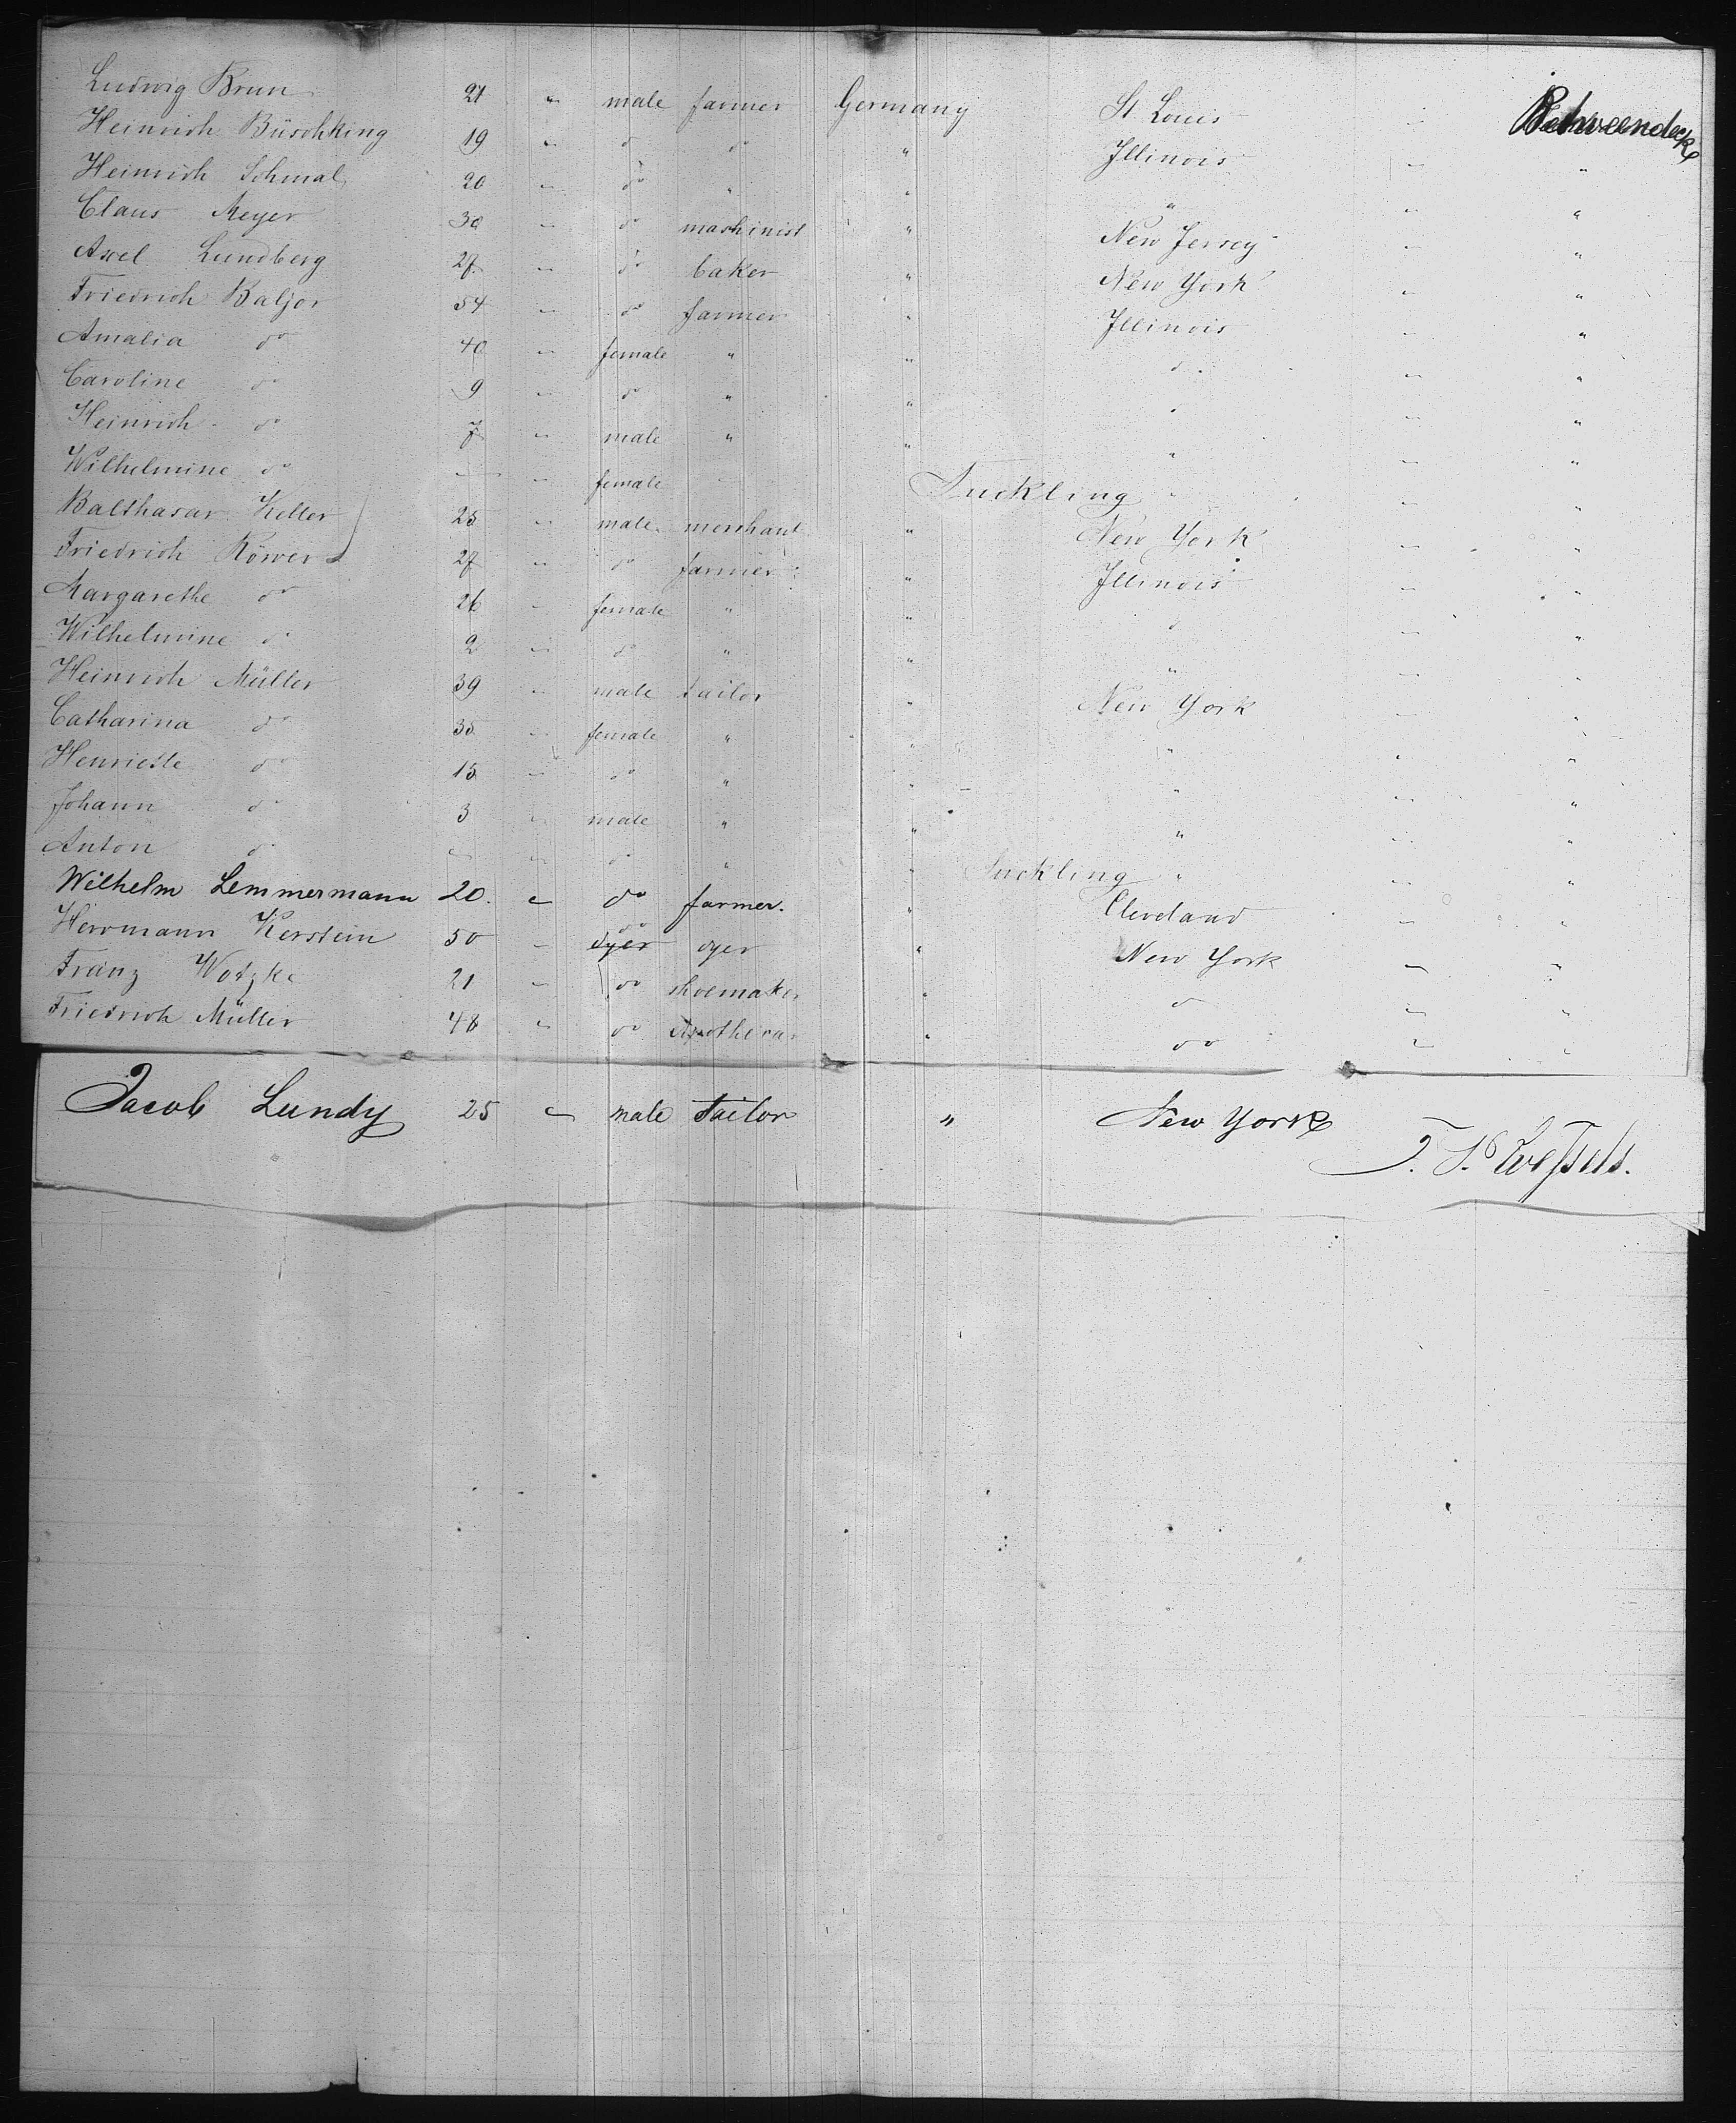 Ludwig Brun 21 " male farmer Germany St Louis — Betweendeck
Heinrich Büschking 19 " do do " Illinois — "
Heinrich Schmal 20 " do " " " — "
Claus Meyer 30 " do mashinist " New Jersey — "
Axel Lundberg 27 " do baker " New York — "
Friedrich Baljor 54 " do farmer " Illinois — "
Amalia do 40 " female " " do — "
Caroline do 9 " do " " do — "
Heinrich do 7 " male " " " — "
Wilhelmine do — " female Suckling " — "
Balthasar Keller 25 " male merchant " New York — "
Friedrich Röwer 27 " do farmer " Illinois — "
Margarethe do 26 " female " " do — "
Wilhelmine do 2 " do " " " — "
Heinrich Müller 39 " male tailor " New York — "
Catharina do 35 " female " " " — "
Henriette do 15 " do " " " — "
Johann do 3 " male " " " — "
Anton do — " do " " Suckling " — "
Wilhelm Lemmermann 20. " do farmer. " Cleveland — "
Herrmann Kerstein 50 " dyer do dyer " New York — "
Franz Wotzke 21 " do shoemaker " do — "
Friedrich Müller 48 " do Apothecar " do — "
Jacob Lundy 25 " male Tailor " New York
Wessels.